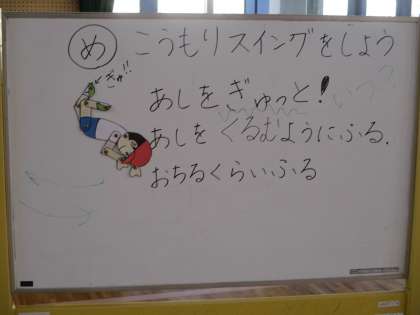 め こうもりスイングをしよう
ぎゅ!!
あしをぎゅっと! いつ?
あしをくるむようにふる.
おちるくらいふる